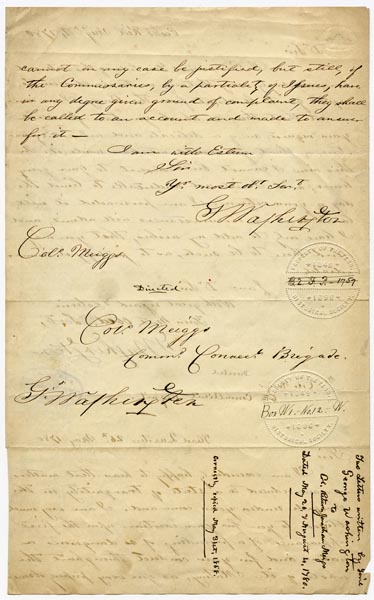 cannot in any case be justified, but still, if
the Commissaries, by a partiality of Issues, have
in any degree given ground of complaint, they shall
be called to an account and made to answer
for it —
I am with Esteem
Sir
Yr. most obt. Servt.
Go. Washington
Colo. Meiggs
Directed
Colo. Meiggs
Comm. Connect. Brigade.
Go. Washington
HISTORICAL SOCIETY
1789
HISTORICAL SOCIETY
Box W1. No. 12. W.
Two Letters written by Genl.
George Washington
to
Jonathan Meigs
Dated May 26, & August 11, 1780.
May 31st, 1858.